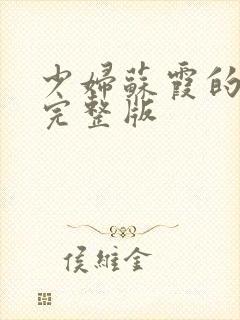 少婦蘇霞的
完整版
侯維金